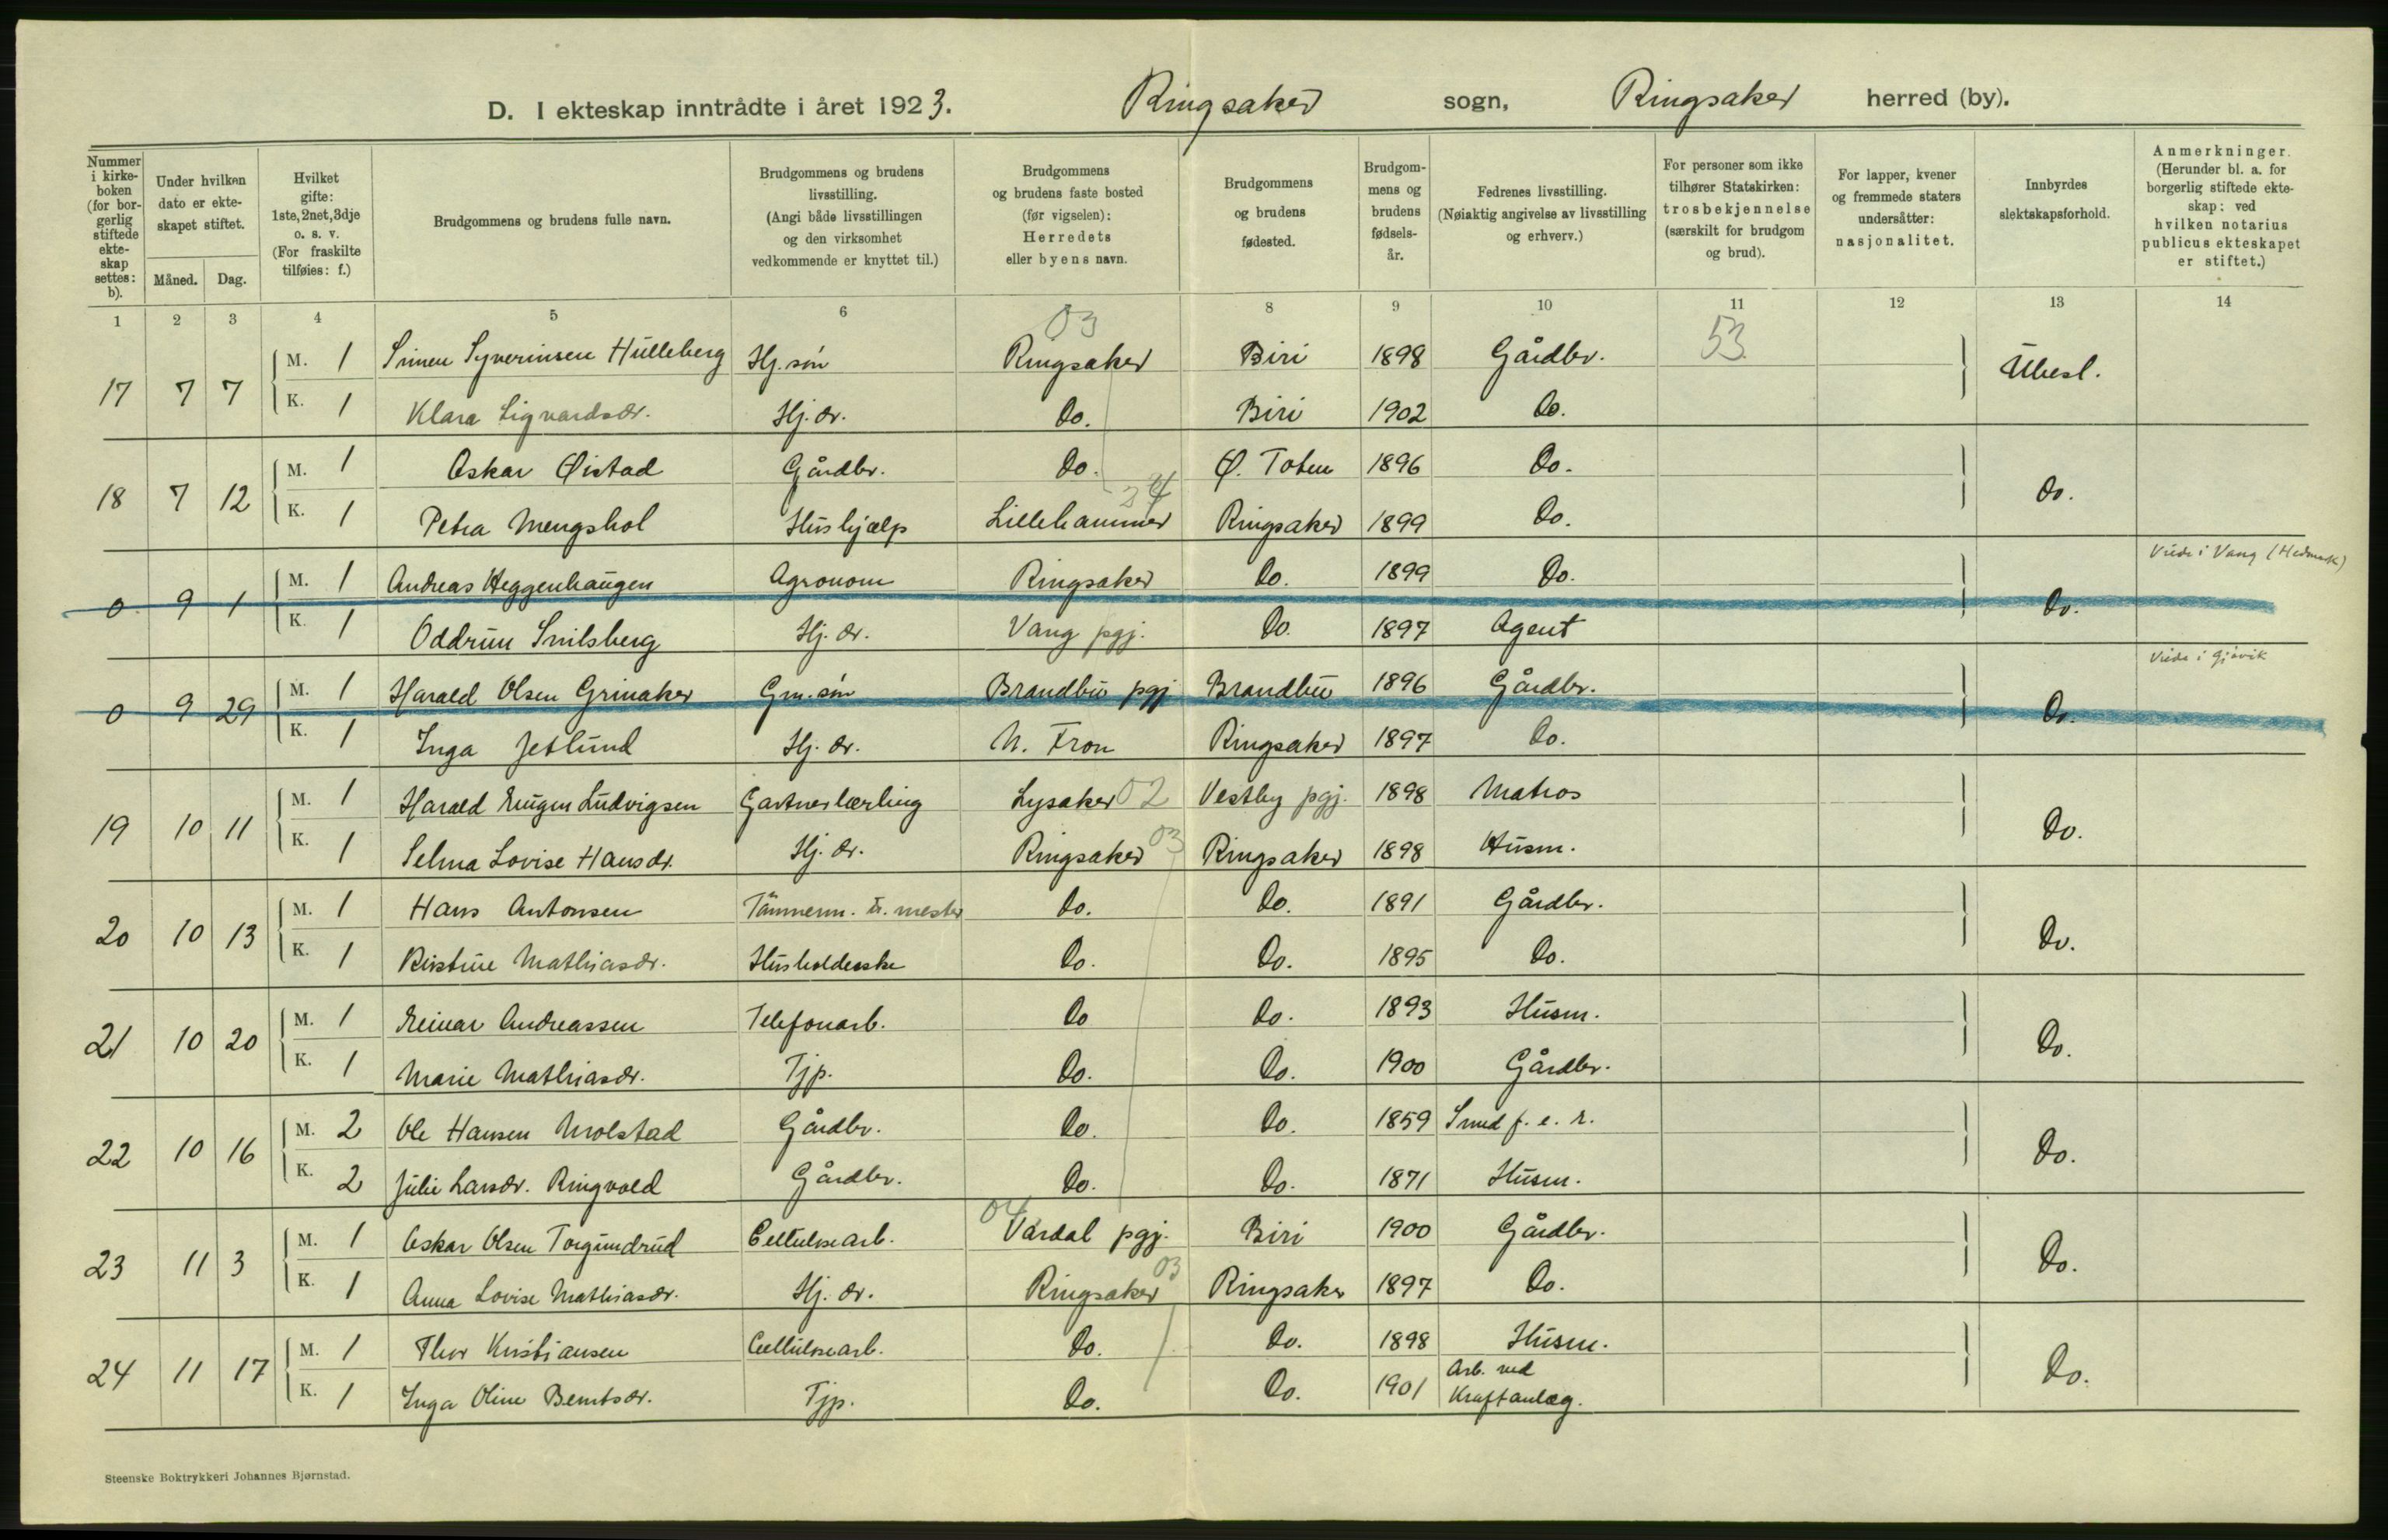 D. I ekteskap inntrådte i året 1923. Ringsaker sogn, Ringsaker herred (by).
Nummer i kirke- boken (for bor- gerlig stiftede ekte- skap settes: b).
Under hvilken dato er ekte- skapet stiftet.
Måned. Dag.
Hvilket gifte: 1ste, 2net, 3dje o. s. v. (For fraskilte tilføies: f.)
Brudgommens og brudens fulle navn.
Brudgommens og brudens livsstilling. (Angi både livsstillingen og den virksomhet vedkommende er knyttet til.)
Brudgommens og brudens faste bosted (før vigselen): Herredets eller byens navn.
Brudgommens og brudens fødested.
Brudgom- mens og brudens fødsels- år.
Fedrenes livsstilling. (Nøiaktig angivelse av livsstilling og erhverv.)
For personer som ikke tilhører Statskirken: trosbekjennelse (særskilt for brudgom og brud).
For lapper, kvener og fremmede staters undersåtter: nasjonalitet.
Innbyrdes slektskapsforhold.
Anmerkninger. (Herunder bl. a. for borgerlig stiftede ekte- skap: ved hvilken notarius publicus ekteskapet er stiftet.)
1 2 3 4 5 6 8 9 10 11 12 13 14
03 53
17 7 7 M. 1 Simen Syverinsen Hulleberg Hj. søn Ringsaker Biri 1898 Gårdbr. Ubesl.
K. 1 Klara Sigvardsdr. Hj. dr. Do. Biri 1902 Do.
18 7 12 M. 1 Oskar Øistad Gårdbr. Do. Ø. Toten 1896 Do. Do.
K. 1 Petra Mengshol Hushjælp Lillehammer Ringsaker 1899 Do.
0 9 1 M. 1 Andreas Heggenhaugen Agronom Ringsaker Do. 1899 Do. Do. Viede i Vang (Hedmark)
K. 1 Oddrun Smilsberg Hj. dr. Vang pgj. Do. 1897 Agent
0 9 29 M. 1 Harald Olsen Grinaker Gm. søn Brandbu pgj Brandbu 1896 Gårdbr. Do. Viede i Gjøvik
K. 1 Inga Jetlund Hj. dr. N. Fron Ringsaker 1897 Do.
19 10 11 M. 1 Harald Eugen Ludvigsen Gartnerlærling Lysaker 02 Vestby pgj. 1898 Matros Do.
K. 1 Selma Lovise Hansdr. Hj. dr. Ringsaker 03 Ringsaker 1898 Husm.
20 10 13 M. 1 Hans Antonsen Tømmerm. mester Do. Do. 1891 Gårdbr. Do.
K. 1 Kristine Mathiasdr. Husholderske Do. Do. 1895 Do.
21 10 20 M. 1 Reinar Andreassen Telefonarb. Do Do. 1893 Husm. Do.
K. 1 Marie Mathiasdr. Tjp. Do. Do. 1900 Gårdbr.
22 10 16 M. 2 Ole Hansen Molstad Gårdbr. Do. Do. 1859 Smed f. e. r. Do.
K. 2 Julie Larsdr. Ringvold Gårdbr. Do. Do. 1871 Husm.
23 11 3 M. 1 Oskar Olsen Torgundrud Cellulosearb. 04 Vardal pgj. Biri 1900 Gårdbr. Do.
K. 1 Anna Lovise Mathiasdr. Hj. dr. Ringsaker 03 Ringsaker 1897 Do.
24 11 17 M. 1 Thor Kristiansen Cellulosearb. Do. Do. 1898 Husm. Do.
K. 1 Inga Oline Berntsdr. Tjp. Do. Do. 1901 Arb. ved
Kraftanlæg.
Steenske Boktrykkeri Johannes Bjørnstad.